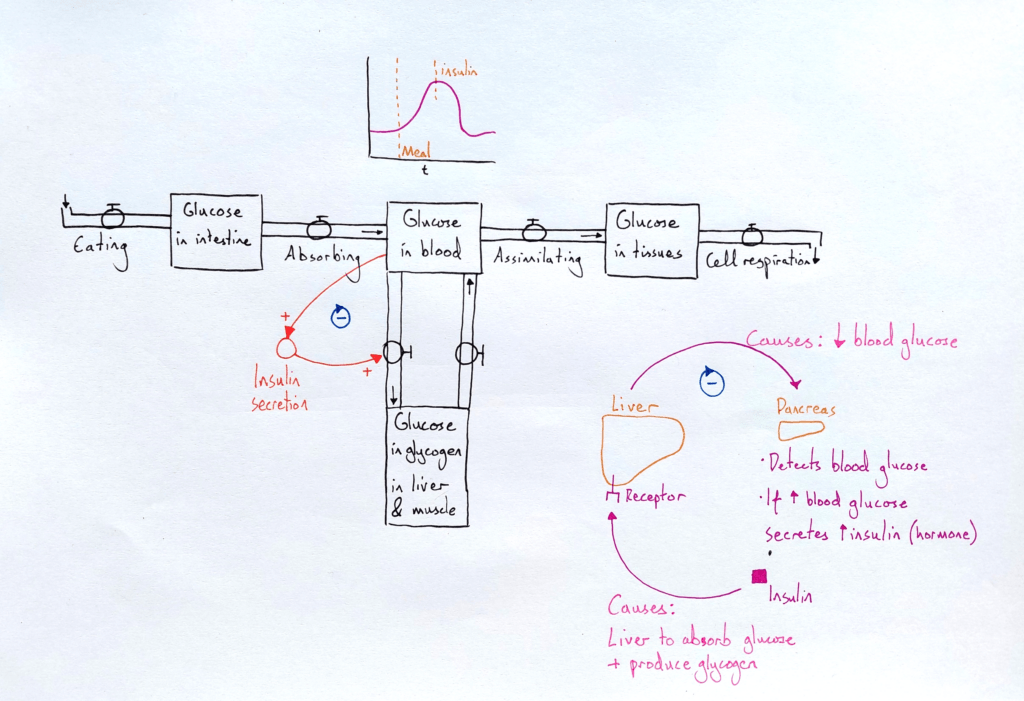 insulin
Meal
t
Glucose
in intestine
Glucose
in blood
Glucose
in tissues
Eating
Absorbing
Assimilating
Cell respiration
+
−
+
Insulin
secretion
Glucose
in glycogen
in liver
& muscle
Causes: ↓ blood glucose
−
Liver
Pancreas
Receptor
· Detects blood glucose
· If ↑ blood glucose
secretes ↑ insulin (hormone)
·
Insulin
Causes:
Liver to absorb glucose
+ produce glycogen